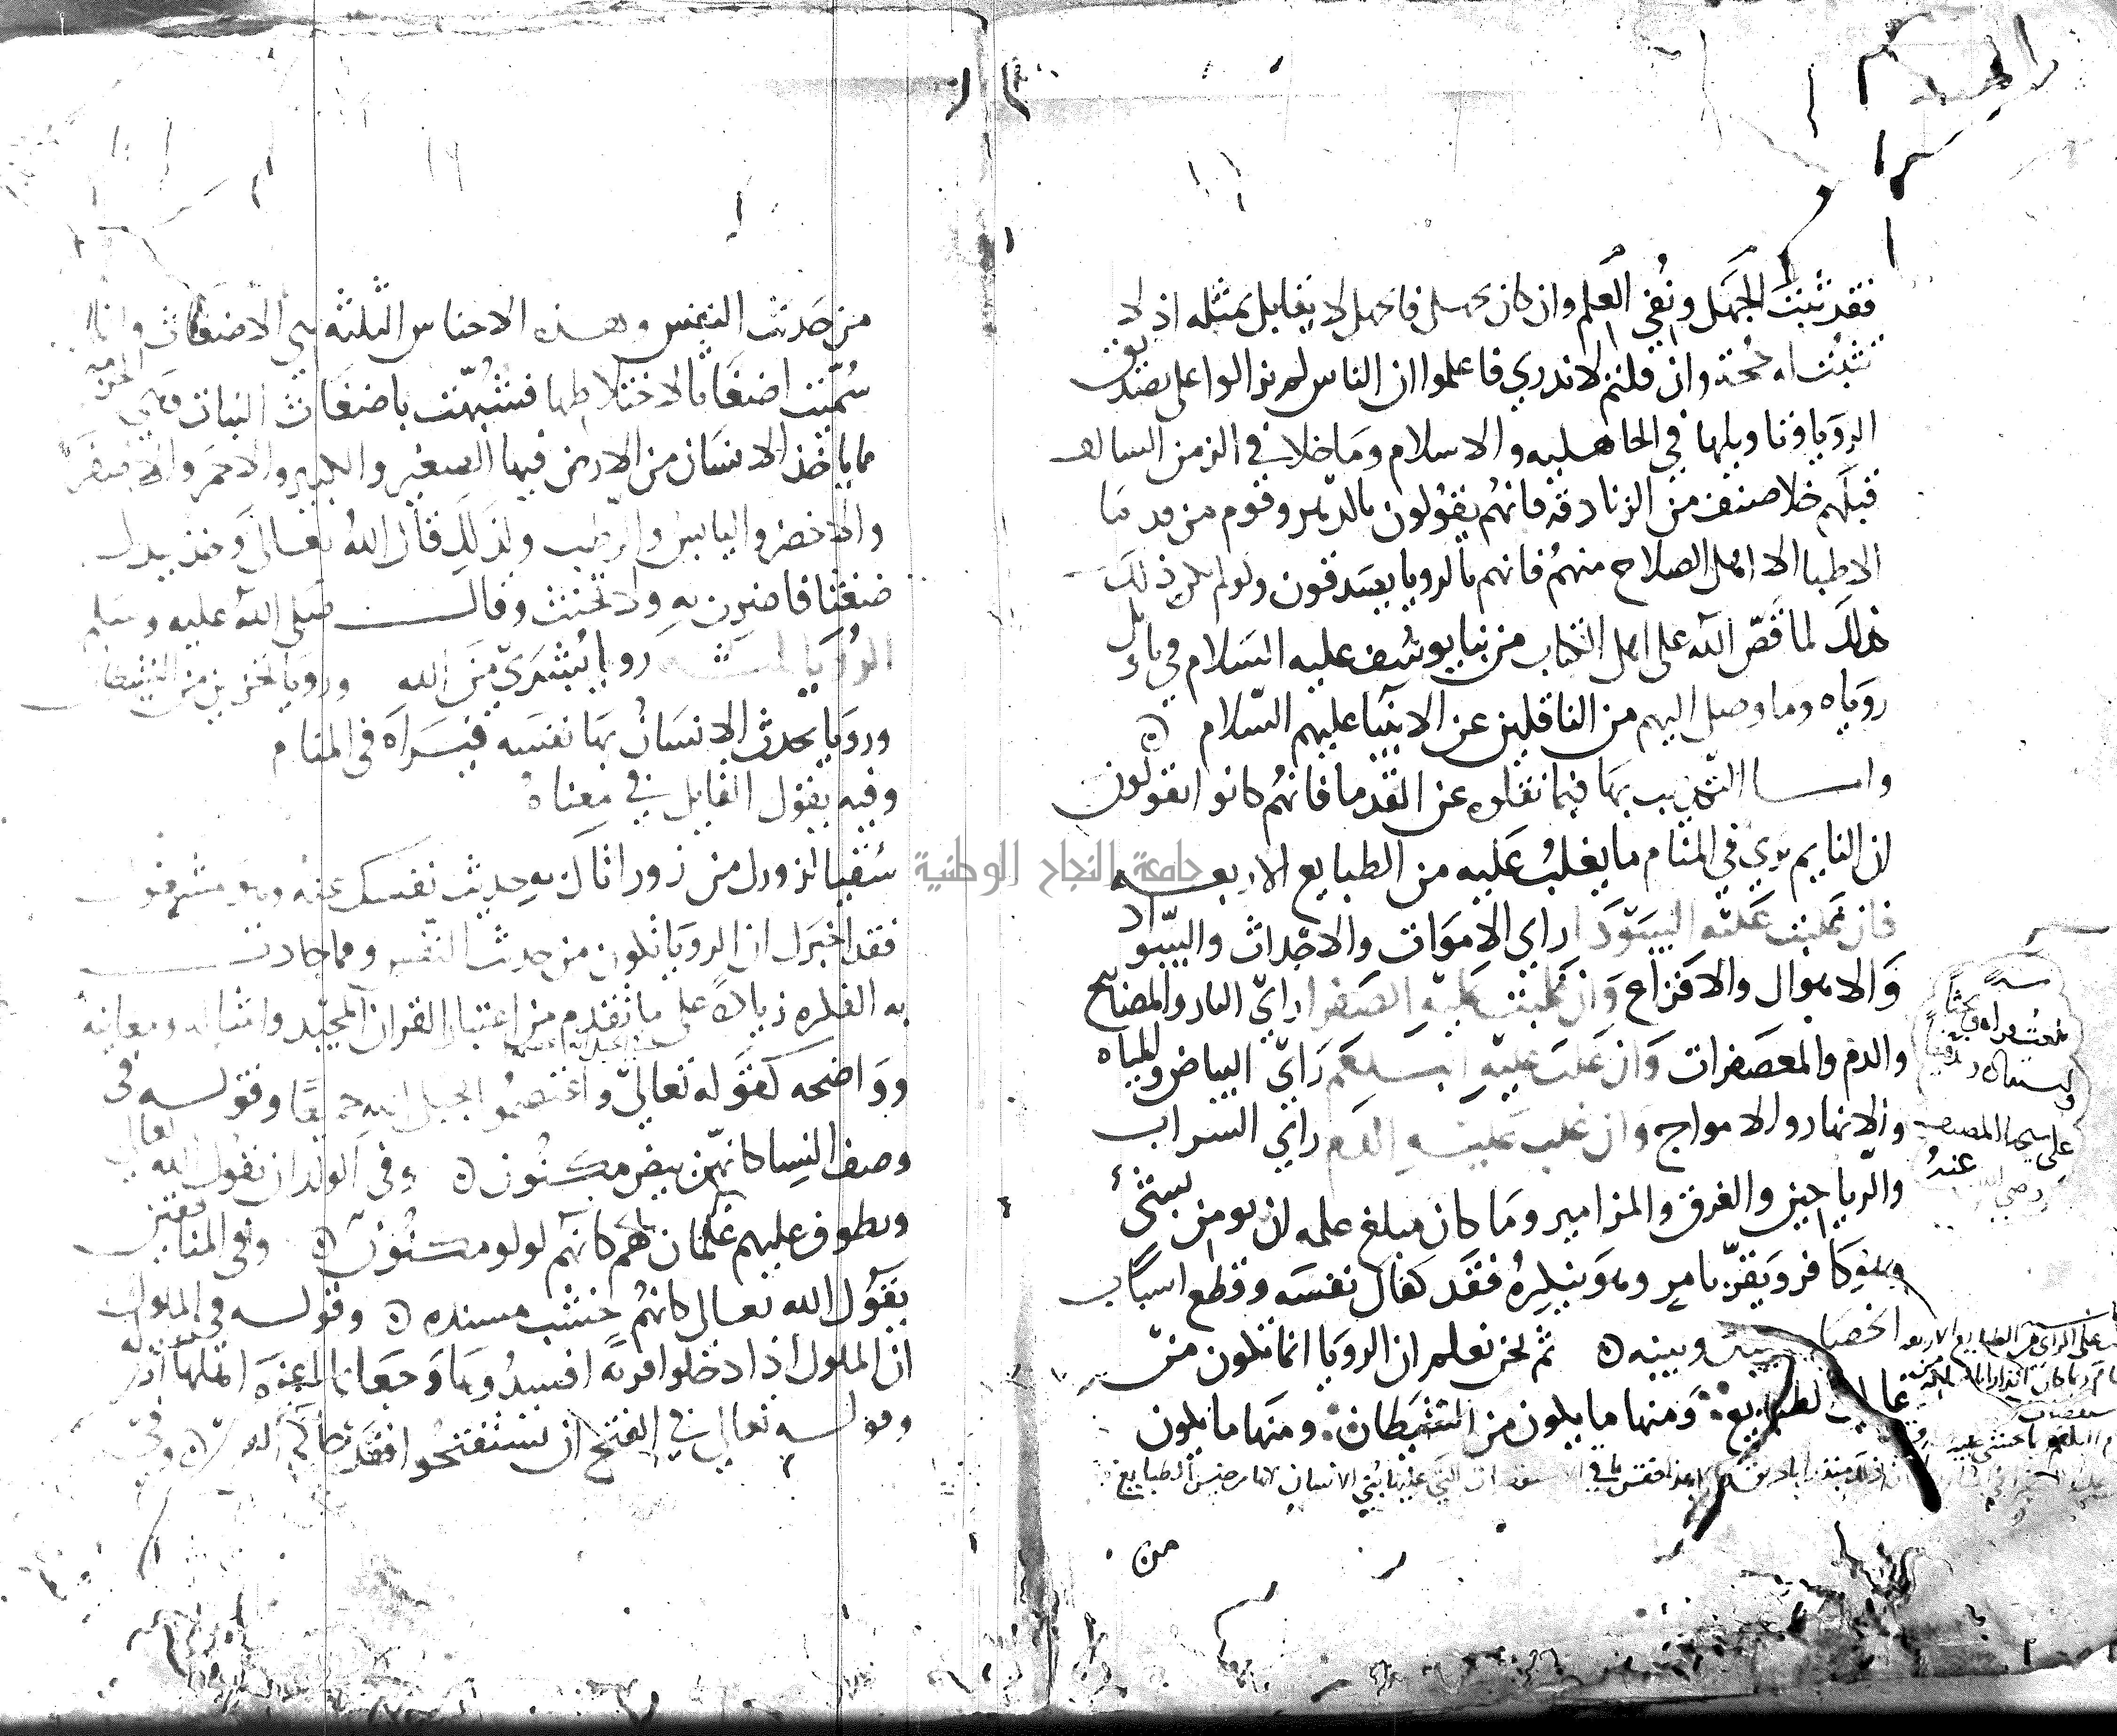 فقد ثبت الجهل ونفي العلم وان كان بجهل فالجهل لا يقابل بمثله اذ لا
تثبت له حجة وان قلتم لا ندري فاعلموا ان الناس لم يزالوا على تصديق
الرويا وتاويلها في الجاهليه والاسلام وما خلا في الزمن السالف
قبلهم خلا صنف من الزنادقه فانهم يقولون بالدهر وقوم من قدما
الاطبا الا اهل الصلاح منهم فانهم بالرويا يصدقون ولو لم يكن ذلك
كذلك لما قص الله على اهل الكتاب من نبا يوسف عليه السلام في تاويل
روياه وما وصل اليهم من الناقلين عن الانبيا عليهم السلام
واما التكذيب بها فيما نقلوه عن القدما فانهم كانوا يقولون
ان النايم يرى في المنام ما يغلب عليه من الطبايع الاربعه
فان غلبت عليه السودا راى الاموات والاجداث والسواد
والاهوال والافزاع وان غلبت عليه الصفرا راى النار والمصابيح
والدم والمعصفرات وان غلب عليه البلغم راى البياض والمياه
والانهار والامواج وان غلب عليه الدم راى الشراب
والرياحين والغرف والمزامير وما كان مبلغ علمه ان يومن بشئ
وهو كافر ويقر بامر وهو ينكره فقد كفانا نفسه وقطع اسباب
الخصام بيننا وبينه ثم نحن نعلم ان الرويا انما تكون من
غالب الطبايع ومنها ما يكون من الشيطان ومنها ما يكون
من
على الراي من الطبايع الاربعه
على يد المصنف
رضي الله عنه
من حديث النفس وهذه الاجناس الثلثه هي الاضغاث وانما
سميت اضغاثا لاختلاطها فشبهت باضغاث النبات وهي الحزمه
مما ياخذ الانسان من الارض فيها الصغير والكبير والاحمر والاصفر
والاخضر واليابس والرطب ولذلك قال الله تعالى وخذ بيدك
ضغثا فاضرب به ولا تحنث وقال صلى الله عليه وسلم
الرويا ثلثة رويا بشرى من الله ورويا تحزين من الشيطان
ورويا يحدث الانسان بها نفسه فيراه في المنام
وفيه يقول القايل في معناه
سقيا لزورك من زور اتاك به حديث نفسك عنه وهو مشغول
فقد اخبرك ان الرويا تكون من حديث النفس ومما جادت
به الفكره زيادة على ما تقدم من اعتبار القران المجيد وامثاله ومعانيه
وواضحه كقوله تعالى واعتصموا بحبل الله جميعا وقوله في
وصف النسا كانهن بيض مكنون وفي الولدان يقول الله تعالى
ويطوف عليهم غلمان لهم كانهم لولو مكنون وفي المنافقين
يقول الله تعالى كانهم خشب مسنده وقوله في الملوك
ان الملوك اذا دخلوا قرية افسدوها وجعلوا اعزة اهلها اذله
وقوله تعالى في الفتح ان تستفتحوا فقد جاكم الفتح وفي
جامعة النجاح الوطنية